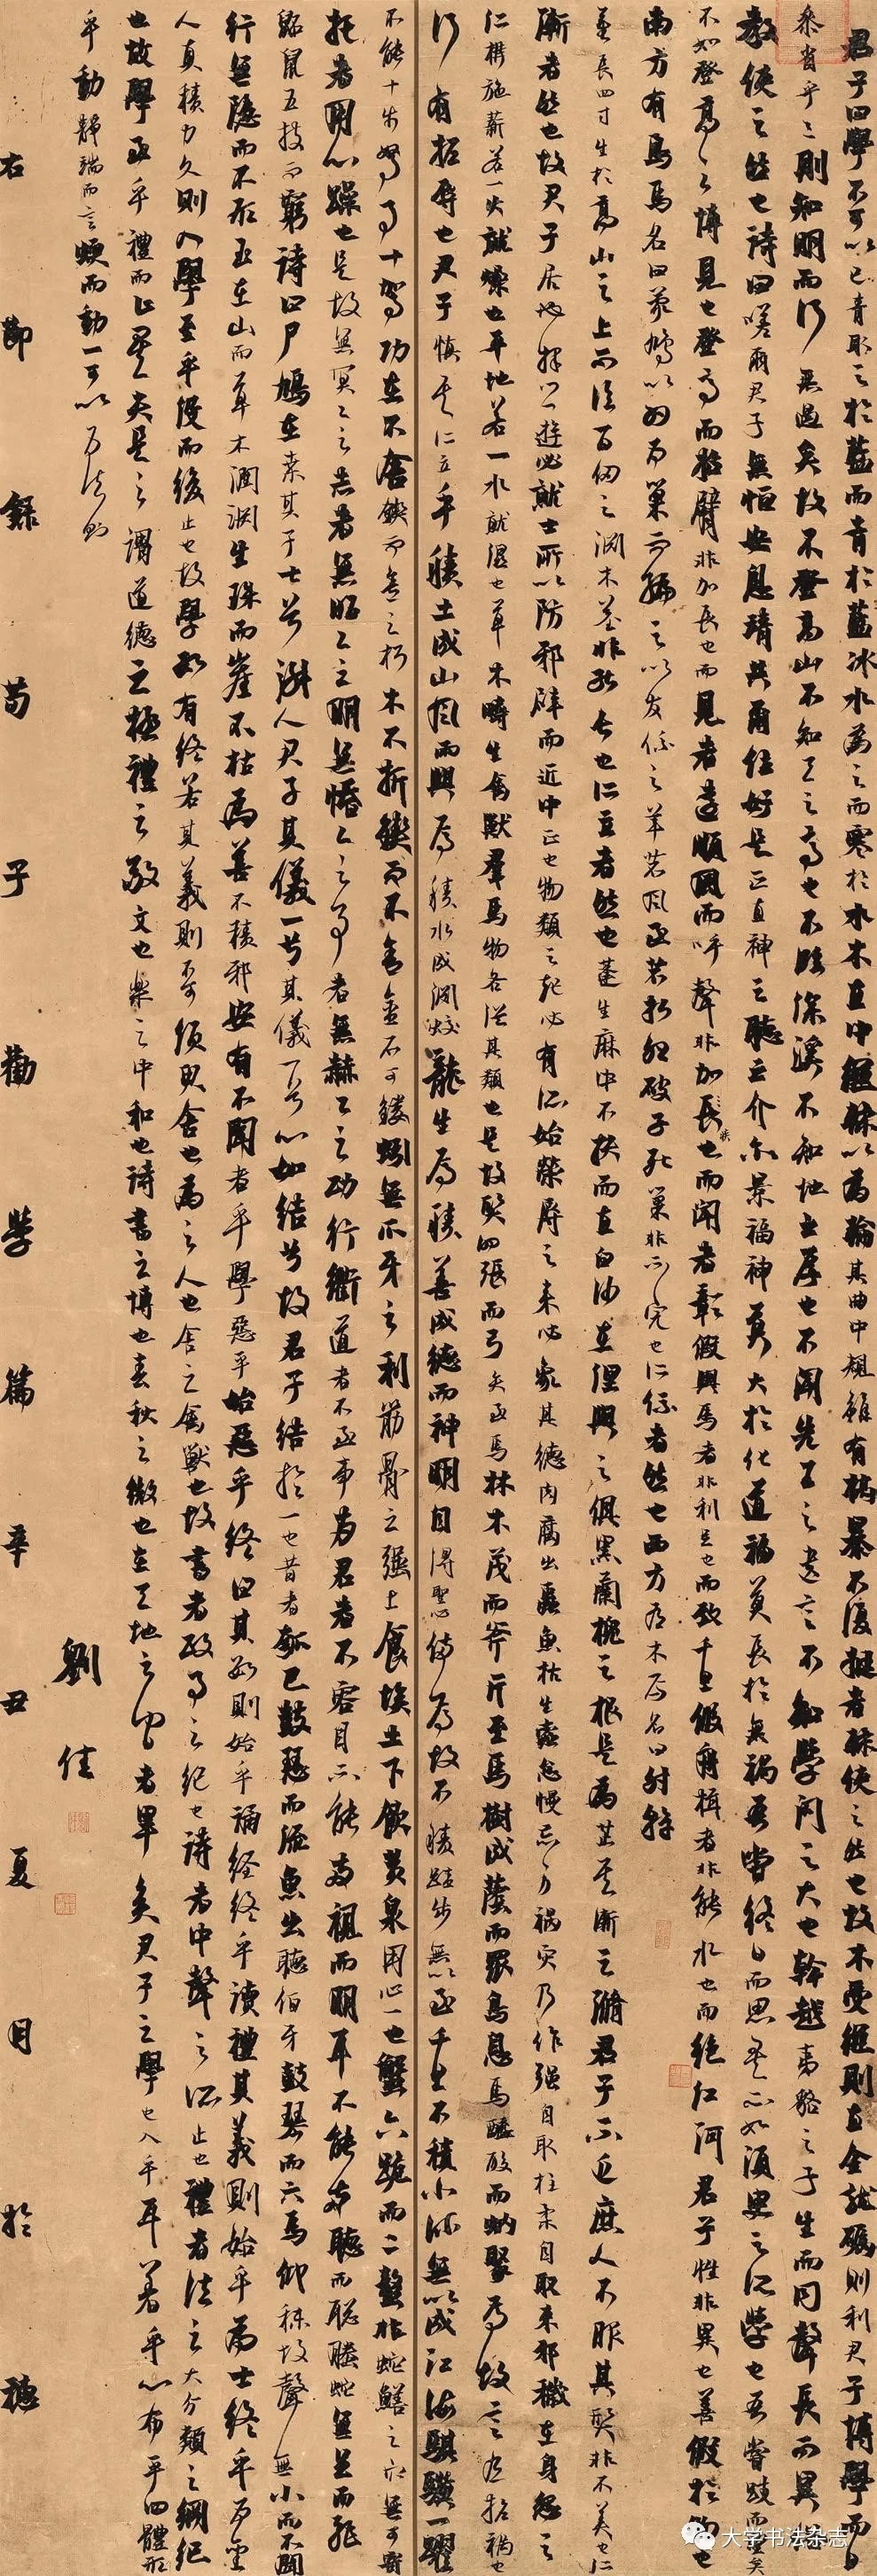 君子曰學不可以已青取之於藍而青於藍冰水為之而寒於水木直中繩輮以為輪其曲中規雖有槁暴不復挺者輮使之然也故木受繩則直金就礪則利君子博學而日
參省乎己則知明而行無過矣故不登高山不知天之高也不臨深溪不知地之厚也不聞先王之遺言不知學問之大也幹越夷貉之子生而同聲長而異俗
教使之然也詩曰嗟爾君子無恒安息靖共爾位好是正直神之聽之介爾景福神莫大於化道福莫長於無禍吾嘗終日而思矣不如須臾之所學也吾嘗跂而望矣
不如登高之博見也登高而招臂非加長也而見者遠順風而呼聲非加疾也而聞者彰假輿馬者非利足也而致千里假舟楫者非能水也而絕江河君子性非異也善假於物也
南方有鳥焉名曰蒙鳩以羽為巢而編之以髮係之葦苕風至苕折卵破子死巢非不完也所係者然也西方有木焉名曰射幹
莖長四寸生於高山之上而臨百仞之淵木莖非能長也所立者然也蓬生麻中不扶而直白沙在涅與之俱黑蘭槐之根是為芷其漸之滫君子不近庶人不服其質非不美也所
漸者然也故君子居必擇鄉遊必就士所以防邪辟而近中正也物類之起必有所始榮辱之來必象其德肉腐出蟲魚枯生蠹怠慢忘身禍災乃作強自取柱柔自取束邪穢在身怨之
所構施薪若一火就燥也平地若一水就濕也草木疇生禽獸群焉物各從其類也是故質的張而弓矢至焉林木茂而斧斤至焉樹成蔭而眾鳥息焉醯酸而蚋聚焉故言有招禍也
行有招辱也君子慎其所立乎積土成山風雨興焉積水成淵蛟龍生焉積善成德而神明自得聖心備焉故不積跬步無以至千里不積小流無以成江海騏驥一躍
不能十步駑馬十駕功在不舍鍥而舍之朽木不折鍥而不舍金石可鏤螾無爪牙之利筋骨之強上食埃土下飲黃泉用心一也蟹六跪而二螯非蛇鱔之穴無可寄
托者用心躁也是故無冥冥之志者無昭昭之明無惛惛之事者無赫赫之功行衢道者不至事兩君者不容目不能兩視而明耳不能兩聽而聰螣蛇無足而飛
鼫鼠五技而窮詩曰尸鳩在桑其子七兮淑人君子其儀一兮其儀一兮心如結兮故君子結於一也昔者瓠巴鼓瑟而流魚出聽伯牙鼓琴而六馬仰秣故聲無小而不聞
行無隱而不形玉在山而草木潤淵生珠而崖不枯為善不積邪安有不聞者乎學惡乎始惡乎終曰其數則始乎誦經終乎讀禮其義則始乎為士終乎為聖
人真積力久則入學至乎沒而後止也故學數有終若其義則不可須臾舍也為之人也舍之禽獸也故書者政事之紀也詩者中聲之所止也禮者法之大分類之綱紀
也故學至乎禮而止矣夫是之謂道德之極禮之敬文也樂之中和也詩書之博也春秋之微也在天地之間者畢矣君子之學也入乎耳著乎心布乎四體形
乎動靜端而言蝡而動一可以為法則
右節錄荀子勸學篇辛丑夏月於穗
劉佳
大学书法杂志